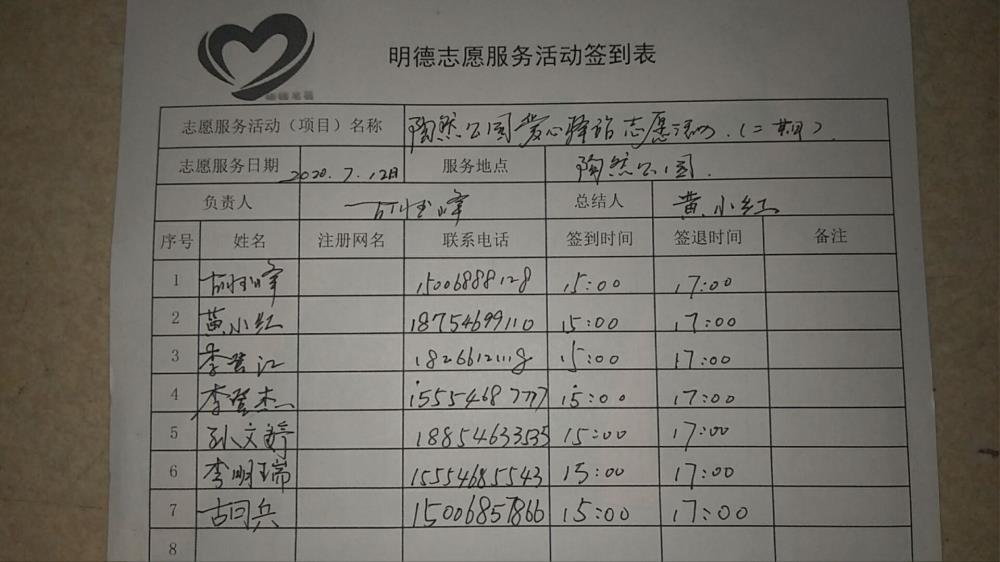 明德志愿服务活动签到表
志愿服务活动（项目）名称 陶然公园爱心驿站志愿活动.(二期).
志愿服务日期 2020.7.12日 服务地点 陶然公园.
负责人 胡海峰 总结人 黄小红
序号 姓名 注册网名 联系电话 签到时间 签退时间 备注
1 15006888128 15:00 17:00
2 黄小红 18754699110 15:00 17:00
3 李登江 18266121118 15:00 17:00
4 李登杰 15554687777 15:00 17:00
5 孙文婷 18854633535 15:00 17:00
6 李明瑞 15554685543 15:00 17:00
7 古同兵 15006857866 15:00 17:00
8